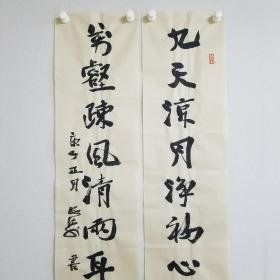 九天凉月净初心
万壑疏风清两耳
庚子正月
书